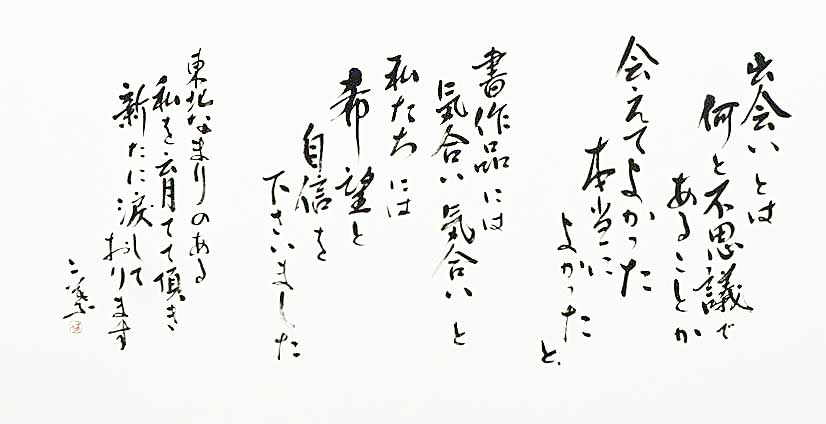 出会いとは
何と不思議で
あることか
会えてよかった
本当に
よかった
と
書作品には
氣合い氣合いと
私たちには
希望と
自信を
下さいました
東北なまりのある
私を育てて頂き
新たに涙して
おります